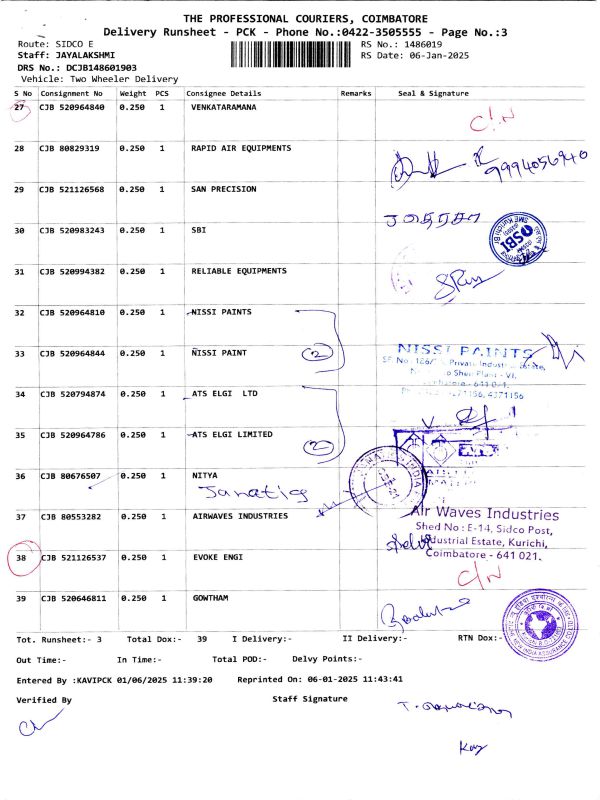 THE PROFESSIONAL COURIERS, COIMBATORE
Delivery Runsheet - PCK - Phone No.:0422-3505555 - Page No.:3
Route: SIDCO E RS No.: 1486019
Staff: JAYALAKSHMI RS Date: 06-Jan-2025
DRS No.: DCJB148601903
Vehicle: Two Wheeler Delivery
S No Consignment No Weight PCS Consignee Details Remarks Seal & Signature
27 CJB 520964840 0.250 1 VENKATARAMANA C/N
28 CJB 80829319 0.250 1 RAPID AIR EQUIPMENTS 9994056940
29 CJB 521126568 0.250 1 SAN PRECISION
30 CJB 520983243 0.250 1 SBI SBI
31 CJB 520994382 0.250 1 RELIABLE EQUIPMENTS
32 CJB 520964810 0.250 1 NISSI PAINTS
33 CJB 520964844 0.250 1 NISSI PAINT 2 NISSI PAINTS
34 CJB 520794874 0.250 1 ATS ELGI LTD
35 CJB 520964786 0.250 1 ATS ELGI LIMITED 2
36 CJB 80676507 0.250 1 NITYA
37 CJB 80553282 0.250 1 AIRWAVES INDUSTRIES Air Waves Industries
Shed No : E-14, Sidco Post,
Industrial Estate, Kurichi,
Coimbatore - 641 021.
38 CJB 521126537 0.250 1 EVOKE ENGI C/N
39 CJB 520646811 0.250 1 GOWTHAM
Tot. Runsheet:- 3 Total Dox:- 39 I Delivery:- II Delivery:- RTN Dox:-
Out Time:- In Time:- Total POD:- Delvy Points:-
Entered By :KAVIPCK 01/06/2025 11:39:20 Reprinted On: 06-01-2025 11:43:41
Verified By Staff Signature